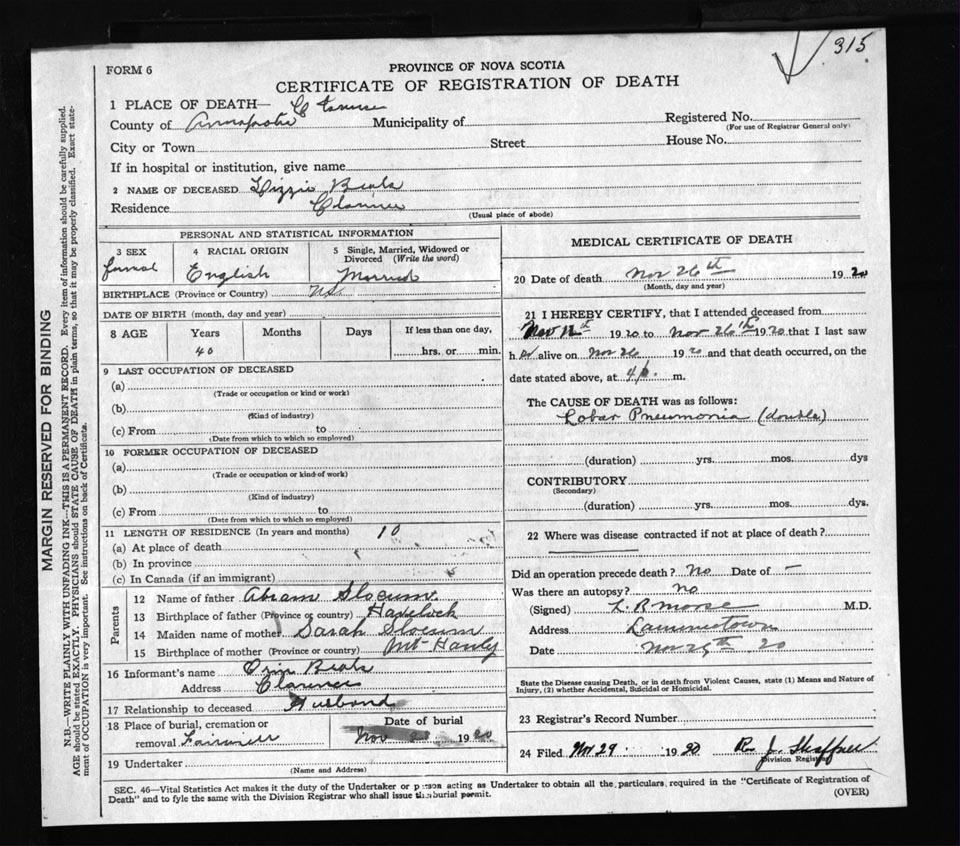 315
FORM 6
PROVINCE OF NOVA SCOTIA
CERTIFICATE OF REGISTRATION OF DEATH
1 PLACE OF DEATH—
County of Annapolis Municipality of Registered No.
(For use of Registrar General only)
City or Town Street House No.
If in hospital or institution, give name
2 NAME OF DECEASED Lizzie Beals
Residence Clarence
(Usual place of abode)
PERSONAL AND STATISTICAL INFORMATION
3 SEX 4 RACIAL ORIGIN 5 Single, Married, Widowed or
Divorced (Write the word)
English Married
BIRTHPLACE (Province or Country) N.S.
DATE OF BIRTH (month, day and year)
8 AGE Years Months Days If less than one day,
40 hrs. or min.
9 LAST OCCUPATION OF DECEASED
(a)
(Trade or occupation or kind or work)
(b)
(Kind of industry)
(c) From to
(Date from which to which so employed)
10 FORMER OCCUPATION OF DECEASED
(a)
(Trade or occupation or kind of work)
(b)
(Kind of industry)
(c) From to
(Date from which to which so employed)
11 LENGTH OF RESIDENCE (In years and months) 10
(a) At place of death
(b) In province
(c) In Canada (if an immigrant)
Parents
12 Name of father Abram Slocum
13 Birthplace of father (Province or country) Havelock
14 Maiden name of mother Sarah Slocum
15 Birthplace of mother (Province or country) Mt Hanly
16 Informant's name Beals
Address Clarence
17 Relationship to deceased Husband
18 Place of burial, cremation or Date of burial
removal Nov 1920
19 Undertaker
(Name and Address)
MEDICAL CERTIFICATE OF DEATH
20 Date of death Nov 26th 1920
(Month, day and year)
21 I HEREBY CERTIFY, that I attended deceased from
Nov 12th 1920 to Nov 26th 1920 that I last saw
h er alive on Nov 26 1920 and that death occurred, on the
date stated above, at 4 p. m.
The CAUSE OF DEATH was as follows:
Lobar Pneumonia (double)
(duration) yrs. mos. dys
CONTRIBUTORY
(Secondary)
(duration) yrs. mos. dys.
22 Where was disease contracted if not at place of death?
Did an operation precede death? No Date of –
Was there an autopsy? No
(Signed) L. R. Morse M.D.
Address Lawrencetown
Date Nov 20
State the Disease causing Death, or in death from Violent Causes, state (1) Means and Nature of
Injury, (2) whether Accidental, Suicidal or Homicidal.
23 Registrar's Record Number
24 Filed Nov 29 1920 R. J. Shaffner
Division Registrar
SEC. 46—Vital Statistics Act makes it the duty of the Undertaker or person acting as Undertaker to obtain all the particulars required in the "Certificate of Registration of
Death" and to fyle the same with the Division Registrar who shall issue the burial permit.
(OVER)
MARGIN RESERVED FOR BINDING
N.B.—WRITE PLAINLY WITH UNFADING INK—THIS IS A PERMANENT RECORD. Every item of information should be carefully supplied.
AGE should be stated EXACTLY. PHYSICIANS should STATE CAUSE OF DEATH in plain terms, so that it may be properly classified. Exact state-
ment of OCCUPATION is very important. See instructions on back of Certificate.